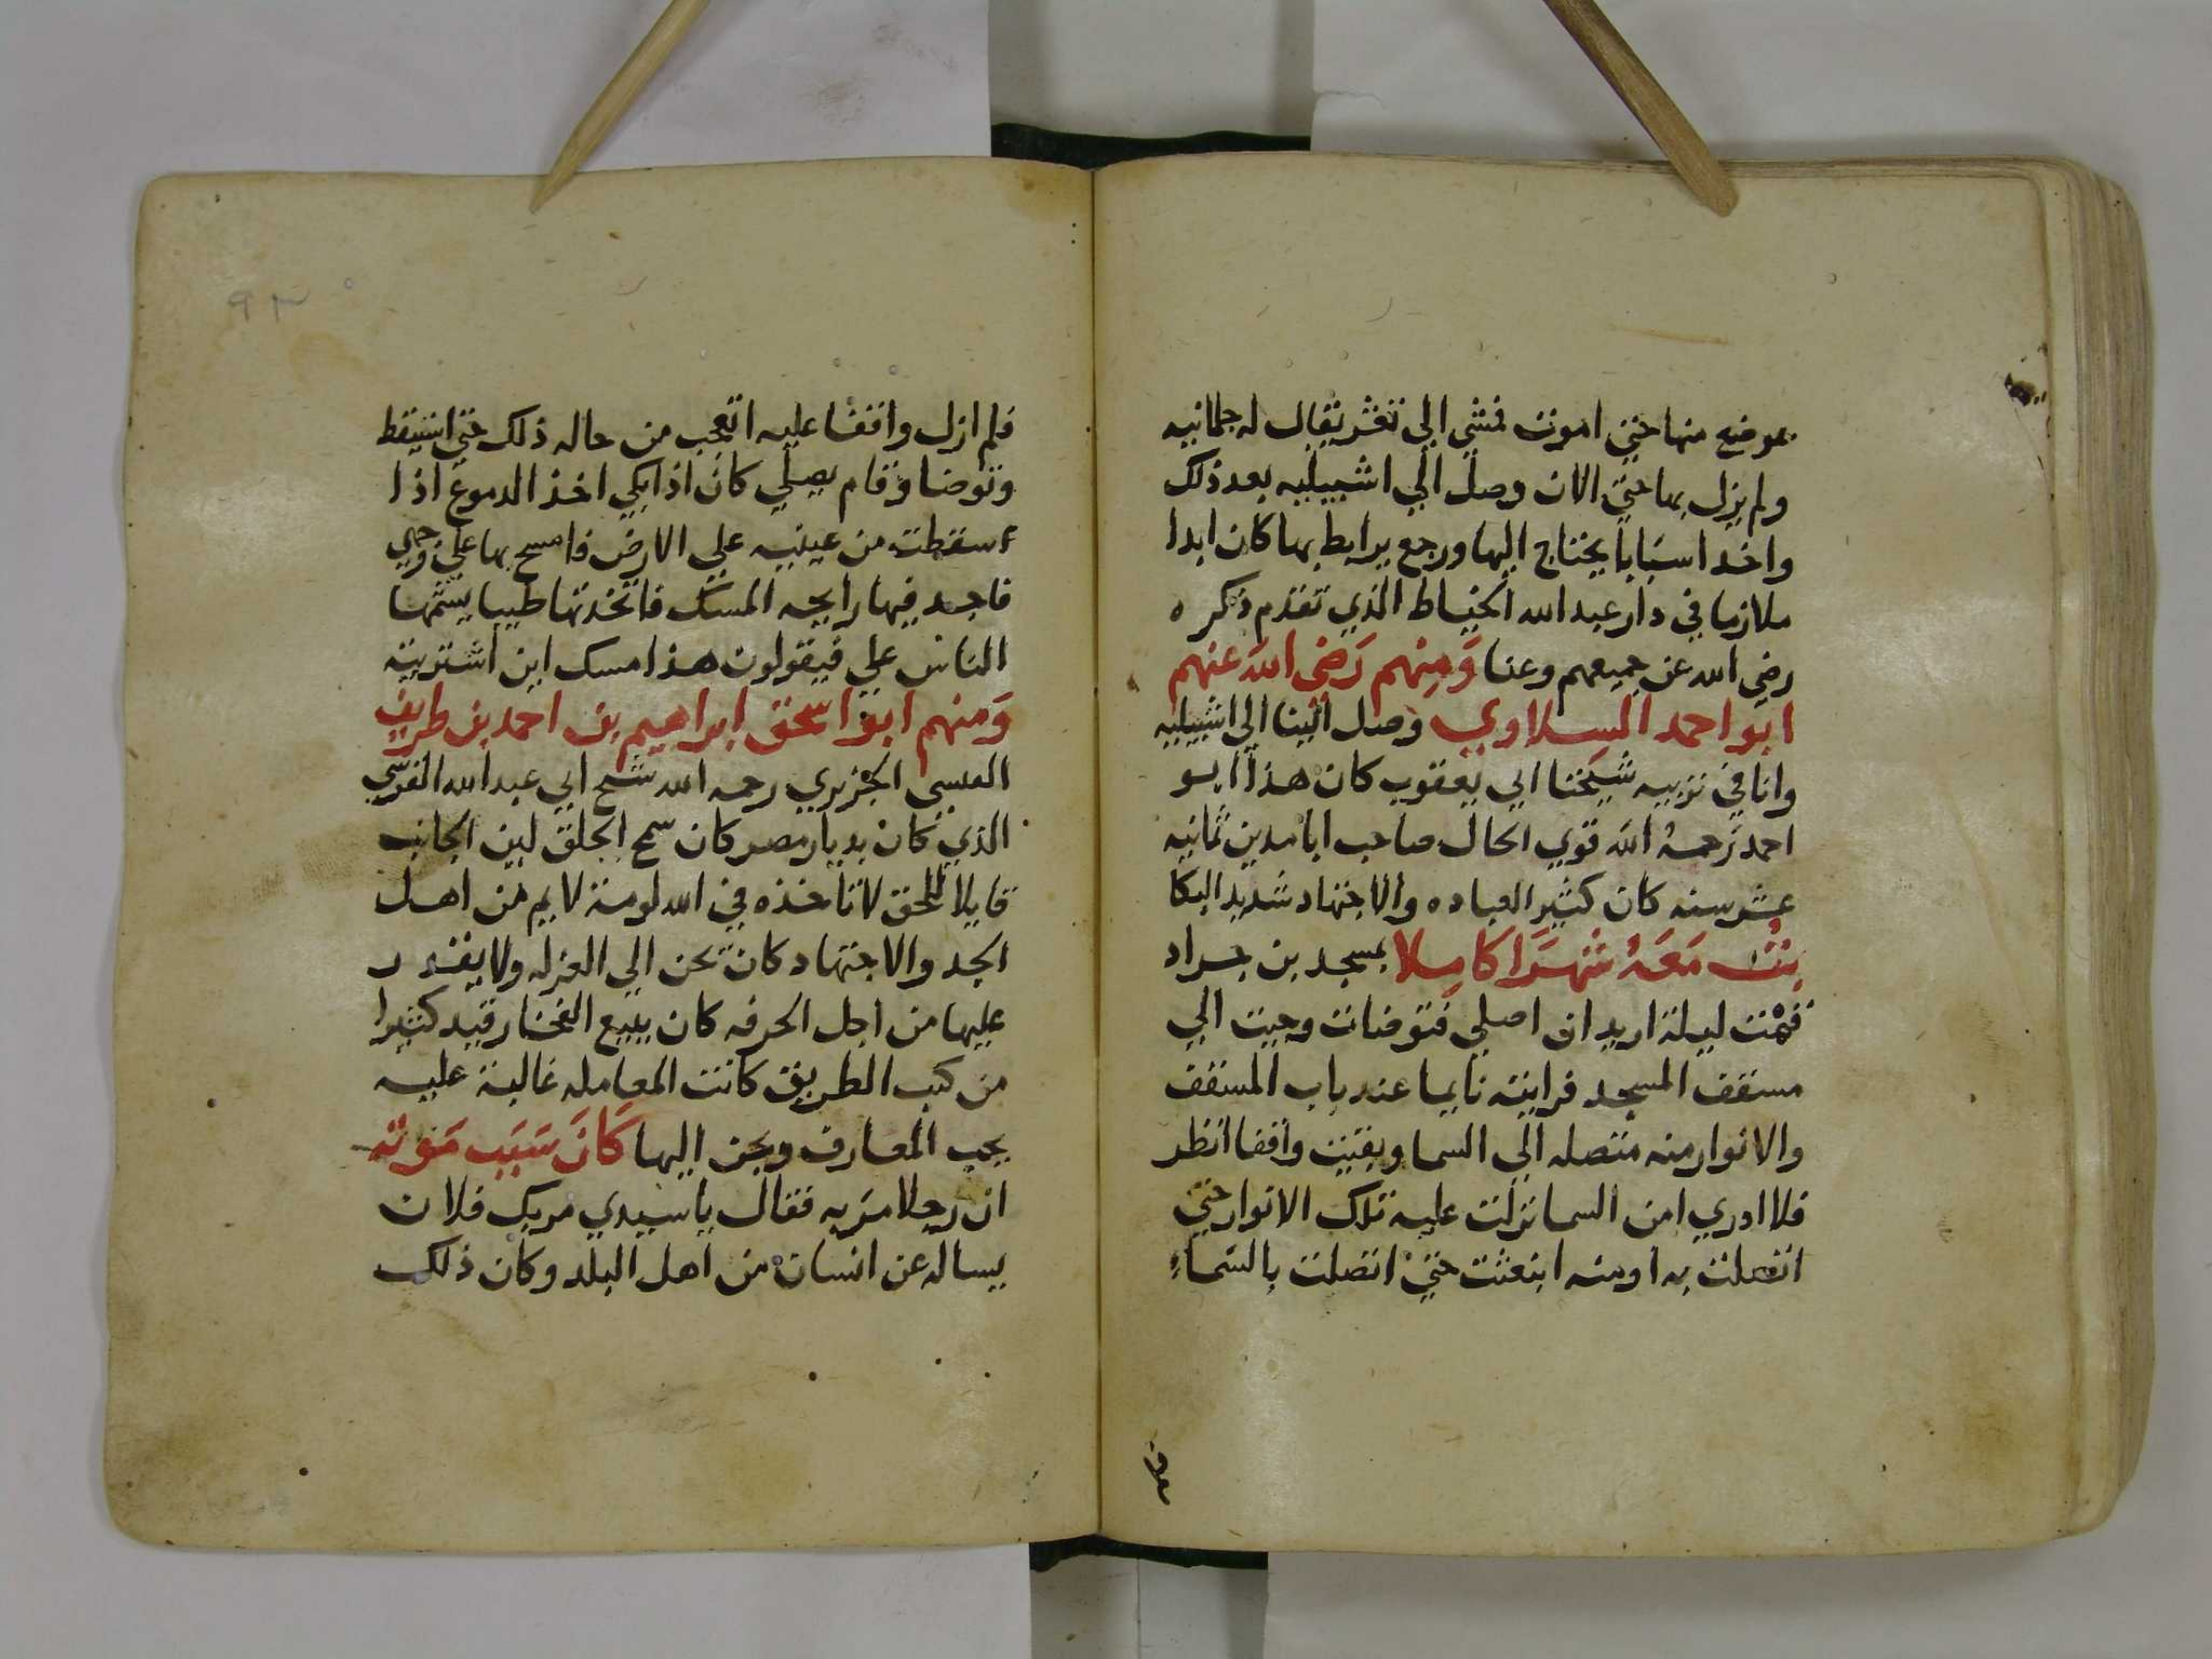 بموضع منها حتى اموت فمشى الى ثغر يقال له جلمانيه
ولم يزل بها حتى الان وصل الي اشبيليه بعد ذلك
واخد اسبابا يحتاج اليها ورجع يرابط بها كان ابدا
ملازما في دار عبد الله الخياط الذي تقدم ذكره
رضي الله عن جميعهم وعنا وَمِنهم رَضي الله عنهم
ابو احمد السلاوي وصل الينا الى اشبيليه
وانا في تربيه شيخنا ابي يعقوب كان هذا ابو
احمد رَحمهُ الله قوي الحال صاحب ابا مدين ثمانيه
عشر سنه كان كثير العباده والاجتهاد شديد البكا
بتُّ مَعَهُ شهرَا كامِلا بمسجد بن جراد
فقمْت ليلة اريد ان اصلي فتوضات وجيت الي
مسقف المسجد فرايته نايما عند باب المسقف
والانوار منه متصله الي السما وبقيت واقفا انظر
فلا ادري امن السما نزلت عليه تلك الانوار حتى
اتصلت به او منه انبعثت حتى اتصلت بالسّماءِ
فلم
٩٣
فلم ازل واقفا عليه اتعجب من حاله ذلك حتى استيقظ
وتوضا وقام يصلي كان اذا بكي اخذ الدموع اذا
سقطت من عينيه علي الارض فامسح بها علي وجهي
فاجد فيها رايحه المسك فاتخذتها طيبا يشمها
الناس علي فيقولون هذا مسك اين اشتريته
وَمنهم ابو اسحق ابراهيم بن احمد بن طريف
العبسي الجزيري رحمه الله شيخ ابي عبد الله القرشي
الذي كان بديار مصر كان سمح الخلق لين الجانب
قايلا للحق لا تاخذه في الله لومة لايم من اهل
الجد والاجتهاد كان يحن الي العزله ولا يقدر
عليها من اجل الحرفه كان يبيع الفخار قيد كثيرا
من كتب الطريق كانت المعامله غالبة عليه
يحب المعارف ويحن اليها كَانَ سَبَب مَوته
ان رجلا مرَ به فقال يا سيدي مر بك فلان
يساله عن انسان من اهل البلد وكان ذلك